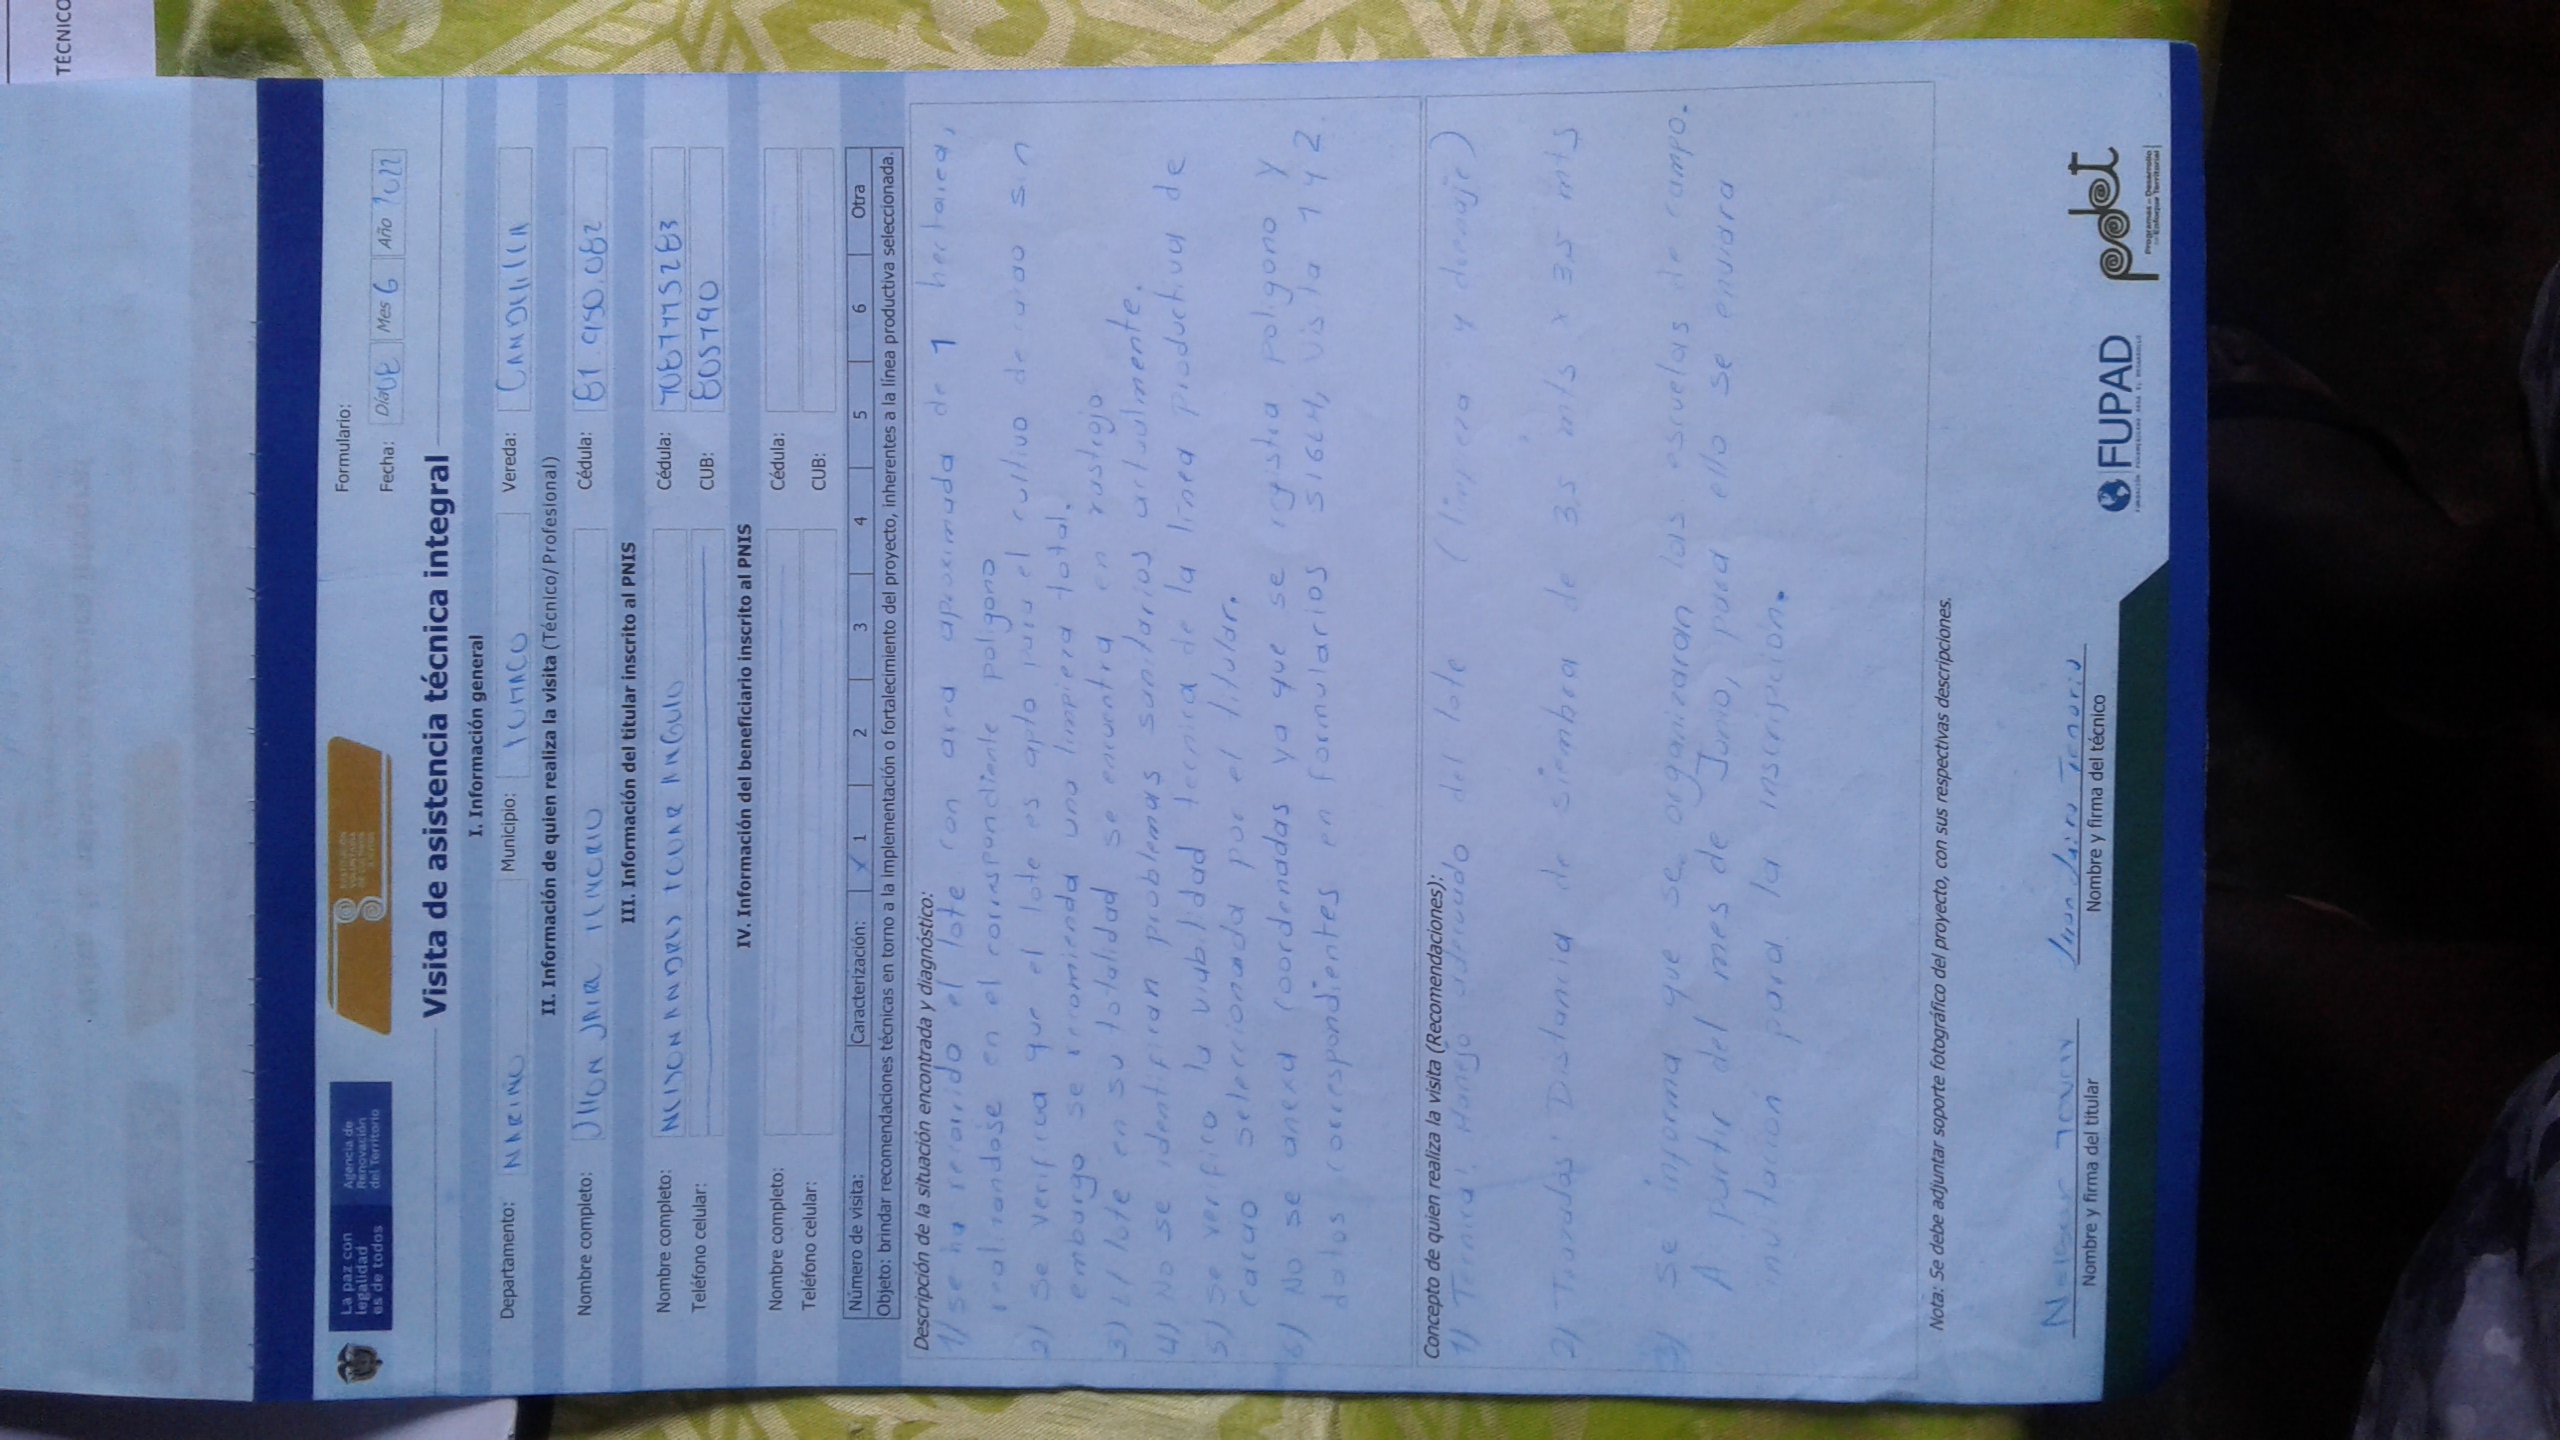 TÉCNICO
La paz con
legalidad
es de todos
Agencia de
Renovación
del Territorio
Formulario:
Fecha: Día 08 Mes 6 Año 2022
Visita de asistencia técnica integral
I. Información general
Departamento: NARIÑO Municipio: TUMACO Vereda: CANDELILLA
II. Información de quien realiza la visita (Técnico/Profesional)
Nombre completo: JHON JAIR TENORIO Cédula: 87.950.082
III. Información del titular inscrito al PNIS
Nombre completo: NELSON ANDRES TOVAR ANGULO Cédula:
Teléfono celular: CUB: 805740
IV. Información del beneficiario inscrito al PNIS
Nombre completo: Cédula:
Teléfono celular: CUB:
Número de visita: Caracterización: X 1 2 3 4 5 6 Otra
Objeto: brindar recomendaciones técnicas en torno a la implementación o fortalecimiento del proyecto, inherentes a la línea productiva seleccionada.
Descripción de la situación encontrada y diagnóstico:
1) se ha recorrido el lote con area aproximada de 1 hectarea,
realizandose en el correspondiente poligono
2) Se verifica que el lote es apto para el cultivo de cacao sin
embargo se recomienda una limpieza total.
3) El lote en su totalidad se encuentra en rastrojo
4) No se identifican problemas sanitarios actualmente.
5) Se verifico la viabilidad tecnica de la linea productiva de
cacao seleccionada por el titular.
6) No se anexa coordenadas ya que se registra poligono y
datos correspondientes en formularios SIGEH, visita 1 y 2.
Concepto de quien realiza la visita (Recomendaciones):
1) Tecnica: Manejo adecuado del lote (limpieza y drenaje)
2) Distancia de siembra de 3.5 mts x 3.5 mts
3) Se informa que se organizaran las escuelas de campo.
A partir del mes de Junio, para ello se enviara
invitacion para la inscripcion.
Nota: Se debe adjuntar soporte fotográfico del proyecto, con sus respectivas descripciones.
Nelson Tovar
Nombre y firma del titular
Jhon Jairo Tenorio
Nombre y firma del técnico
FUPAD
pdet
Programas de Desarrollo
con Enfoque Territorial